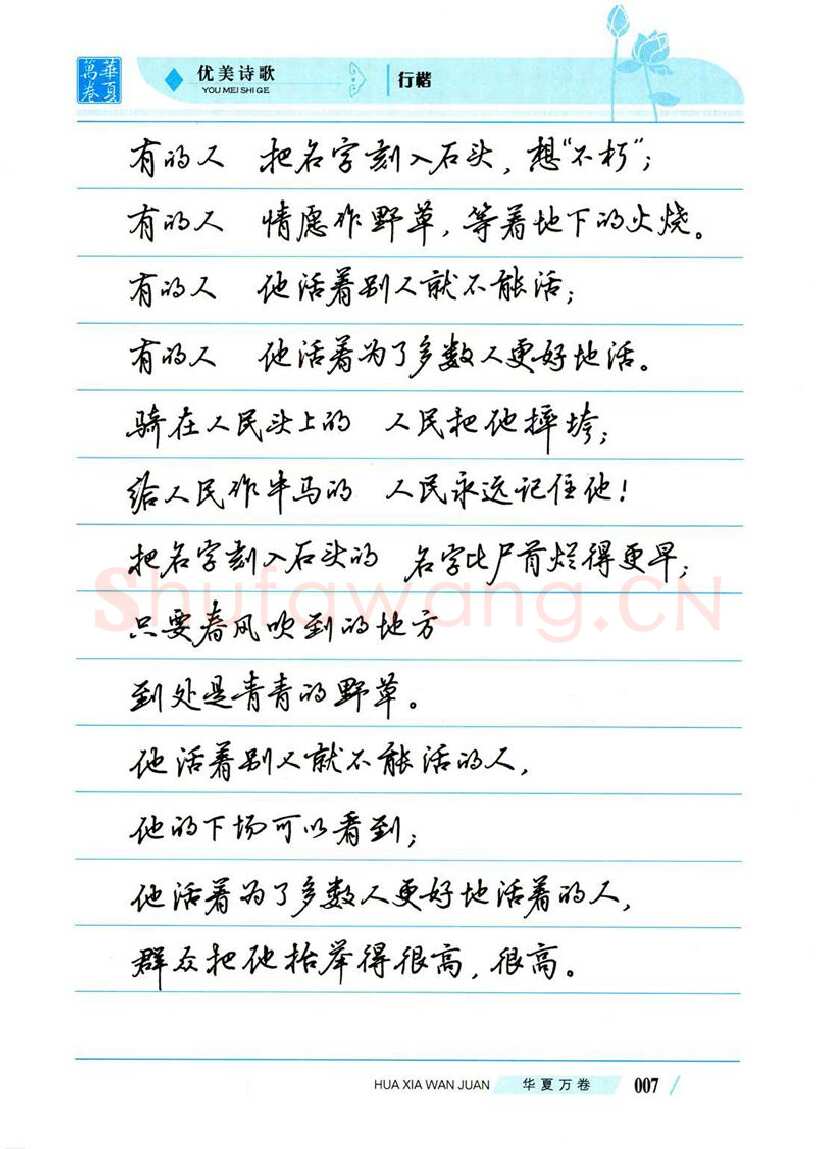 華夏
萬卷
优美诗歌
YOU MEI SHI GE
行楷
有的人 把名字刻入石头，想“不朽”；
有的人 情愿作野草，等着地下的火烧。
有的人 他活着别人就不能活；
有的人 他活着为了多数人更好地活。
骑在人民头上的 人民把他摔垮；
给人民作牛马的 人民永远记住他！
把名字刻入石头的 名字比尸首烂得更早；
只要春风吹到的地方
到处是青青的野草。
他活着别人就不能活的人，
他的下场可以看到；
他活着为了多数人更好地活着的人，
群众把他抬举得很高，很高。
Shufawang.CN
HUA XIA WAN JUAN
华夏万卷
007